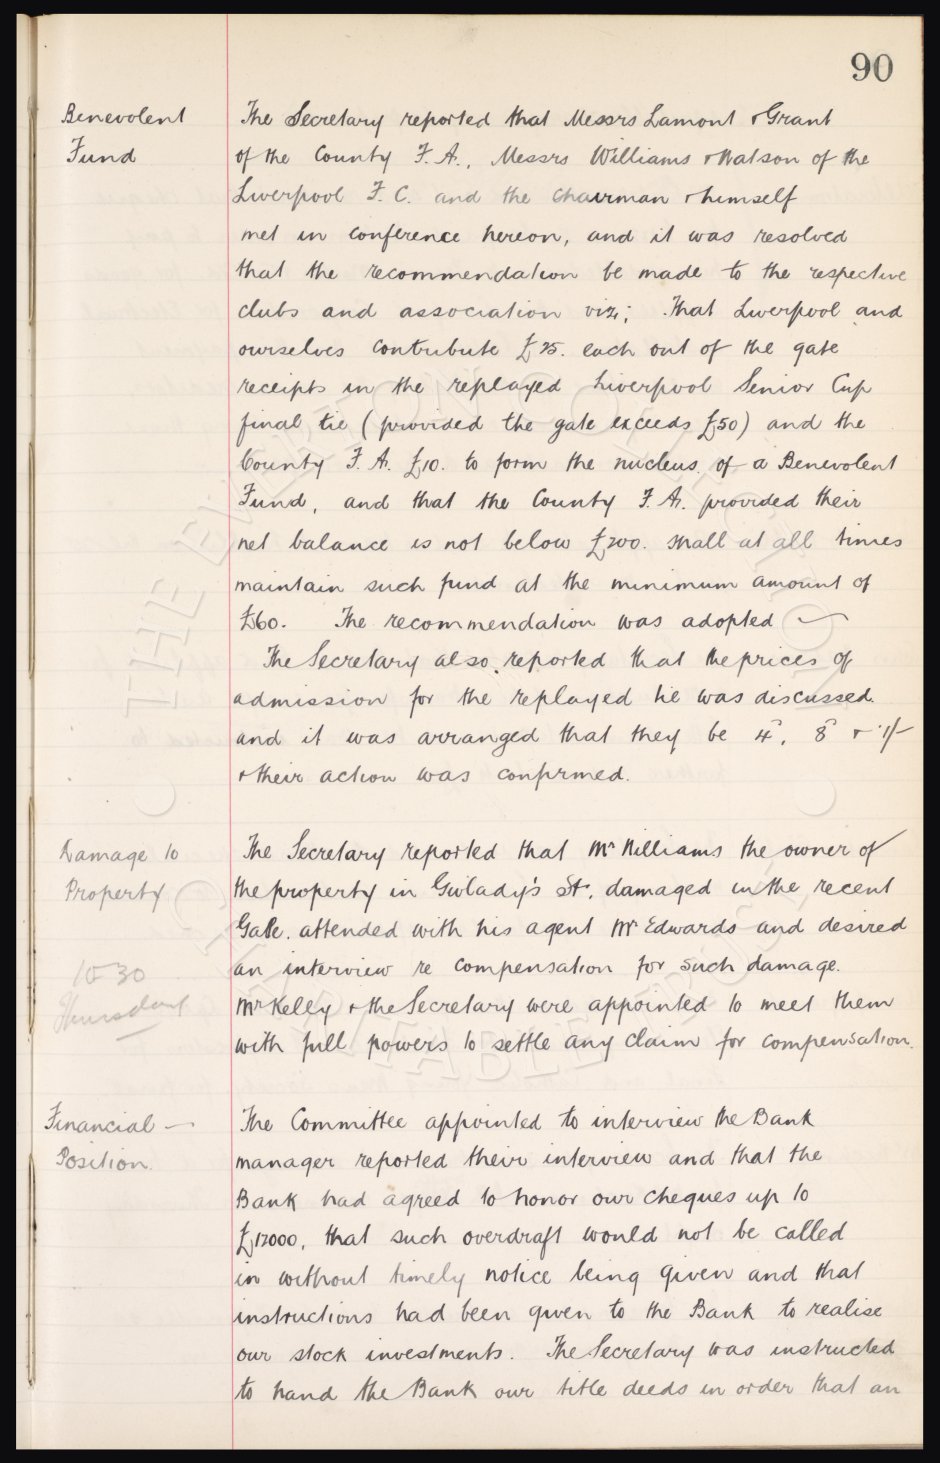 90
Benevolent
Fund
The Secretary reported that Messrs Lamont & Grant
of the County F. A., Messrs Williams & Watson of the
Liverpool F. C. and the Chairman & himself
met in conference hereon, and it was resolved
that the recommendation be made to the respective
clubs and association viz; That Liverpool and
ourselves contribute £25. each out of the gate
receipts in the replayed Liverpool Senior Cup
final tie (provided the gate exceeds £50) and the
County F. A. £10. to form the nucleus of a Benevolent
Fund, and that the County F. A. provided their
net balance is not below £200. shall at all times
maintain such fund at the minimum amount of
£60. The recommendation was adopted
The Secretary also reported that the prices of
admission for the replayed tie was discussed
and it was arranged that they be 4ᵈ, 8ᵈ & 1/-
& their action was confirmed.
Damage to
Property
10-30
Thursday
The Secretary reported that Mr Williams the owner of
the property in Gwlady's St. damaged in the recent
Gale. attended with his agent Mr Edwards and desired
an interview re compensation for such damage.
Mr Kelly & the Secretary were appointed to meet them
with full powers to settle any claim for compensation.
Financial —
Position.
The Committee appointed to interview the Bank
manager reported their interview and that the
Bank had agreed to honor our cheques up to
£12000, that such overdraft would not be called
in without timely notice being given and that
instructions had been given to the Bank to realise
our stock investments. The Secretary was instructed
to hand the Bank our title deeds in order that an